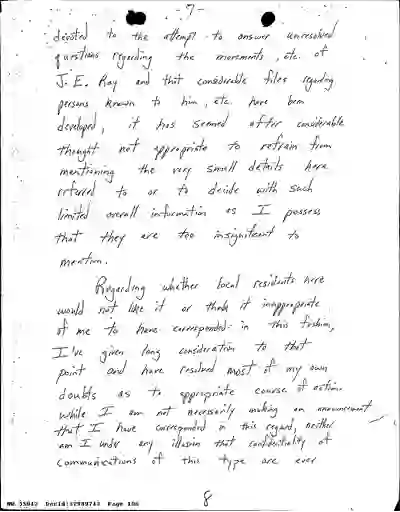 - 7 -
devoted to the attempt to answer unresolved
questions regarding the movements, etc. of
J. E. Ray and that considerable files regarding
persons known to him, etc. have been
developed, it has seemed after considerable
thought not appropriate to refrain from
mentioning the very small details here
referred to or to decide with such
limited overall information as I possess
that they are too insignificant to
mention.
Regarding whether local residents here
would not like it or think it inappropriate
of me to have corresponded in this fashion,
I've given long consideration to that
point and have resolved most of my own
doubts as to appropriate course of action.
While I am not necessarily making an announcement
that I have corresponded in this regard, neither
am I under any illusion that confidentiality of
communications of this type are ever
8
DocId:32989743 Page 186